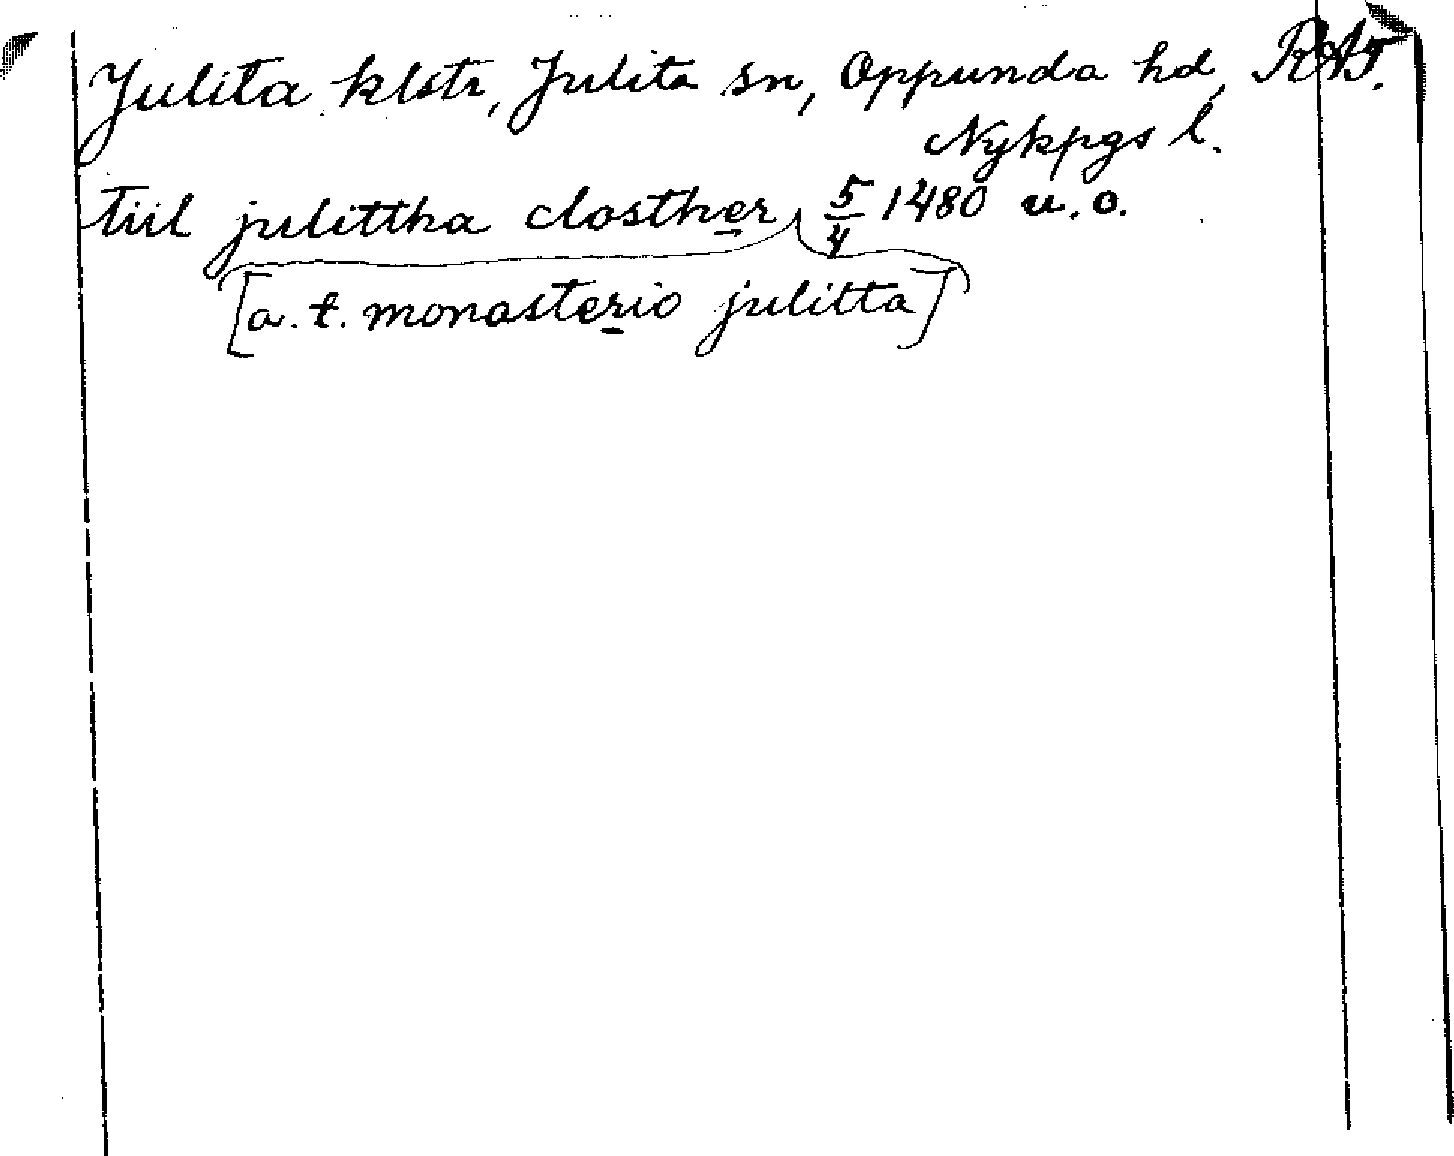 Julita klstr, Julita sn, Oppunda hd,
Nykpgs l.
Tiil julittha closther 5/4 1480 u. o.
[a. t. monasterio julitta]